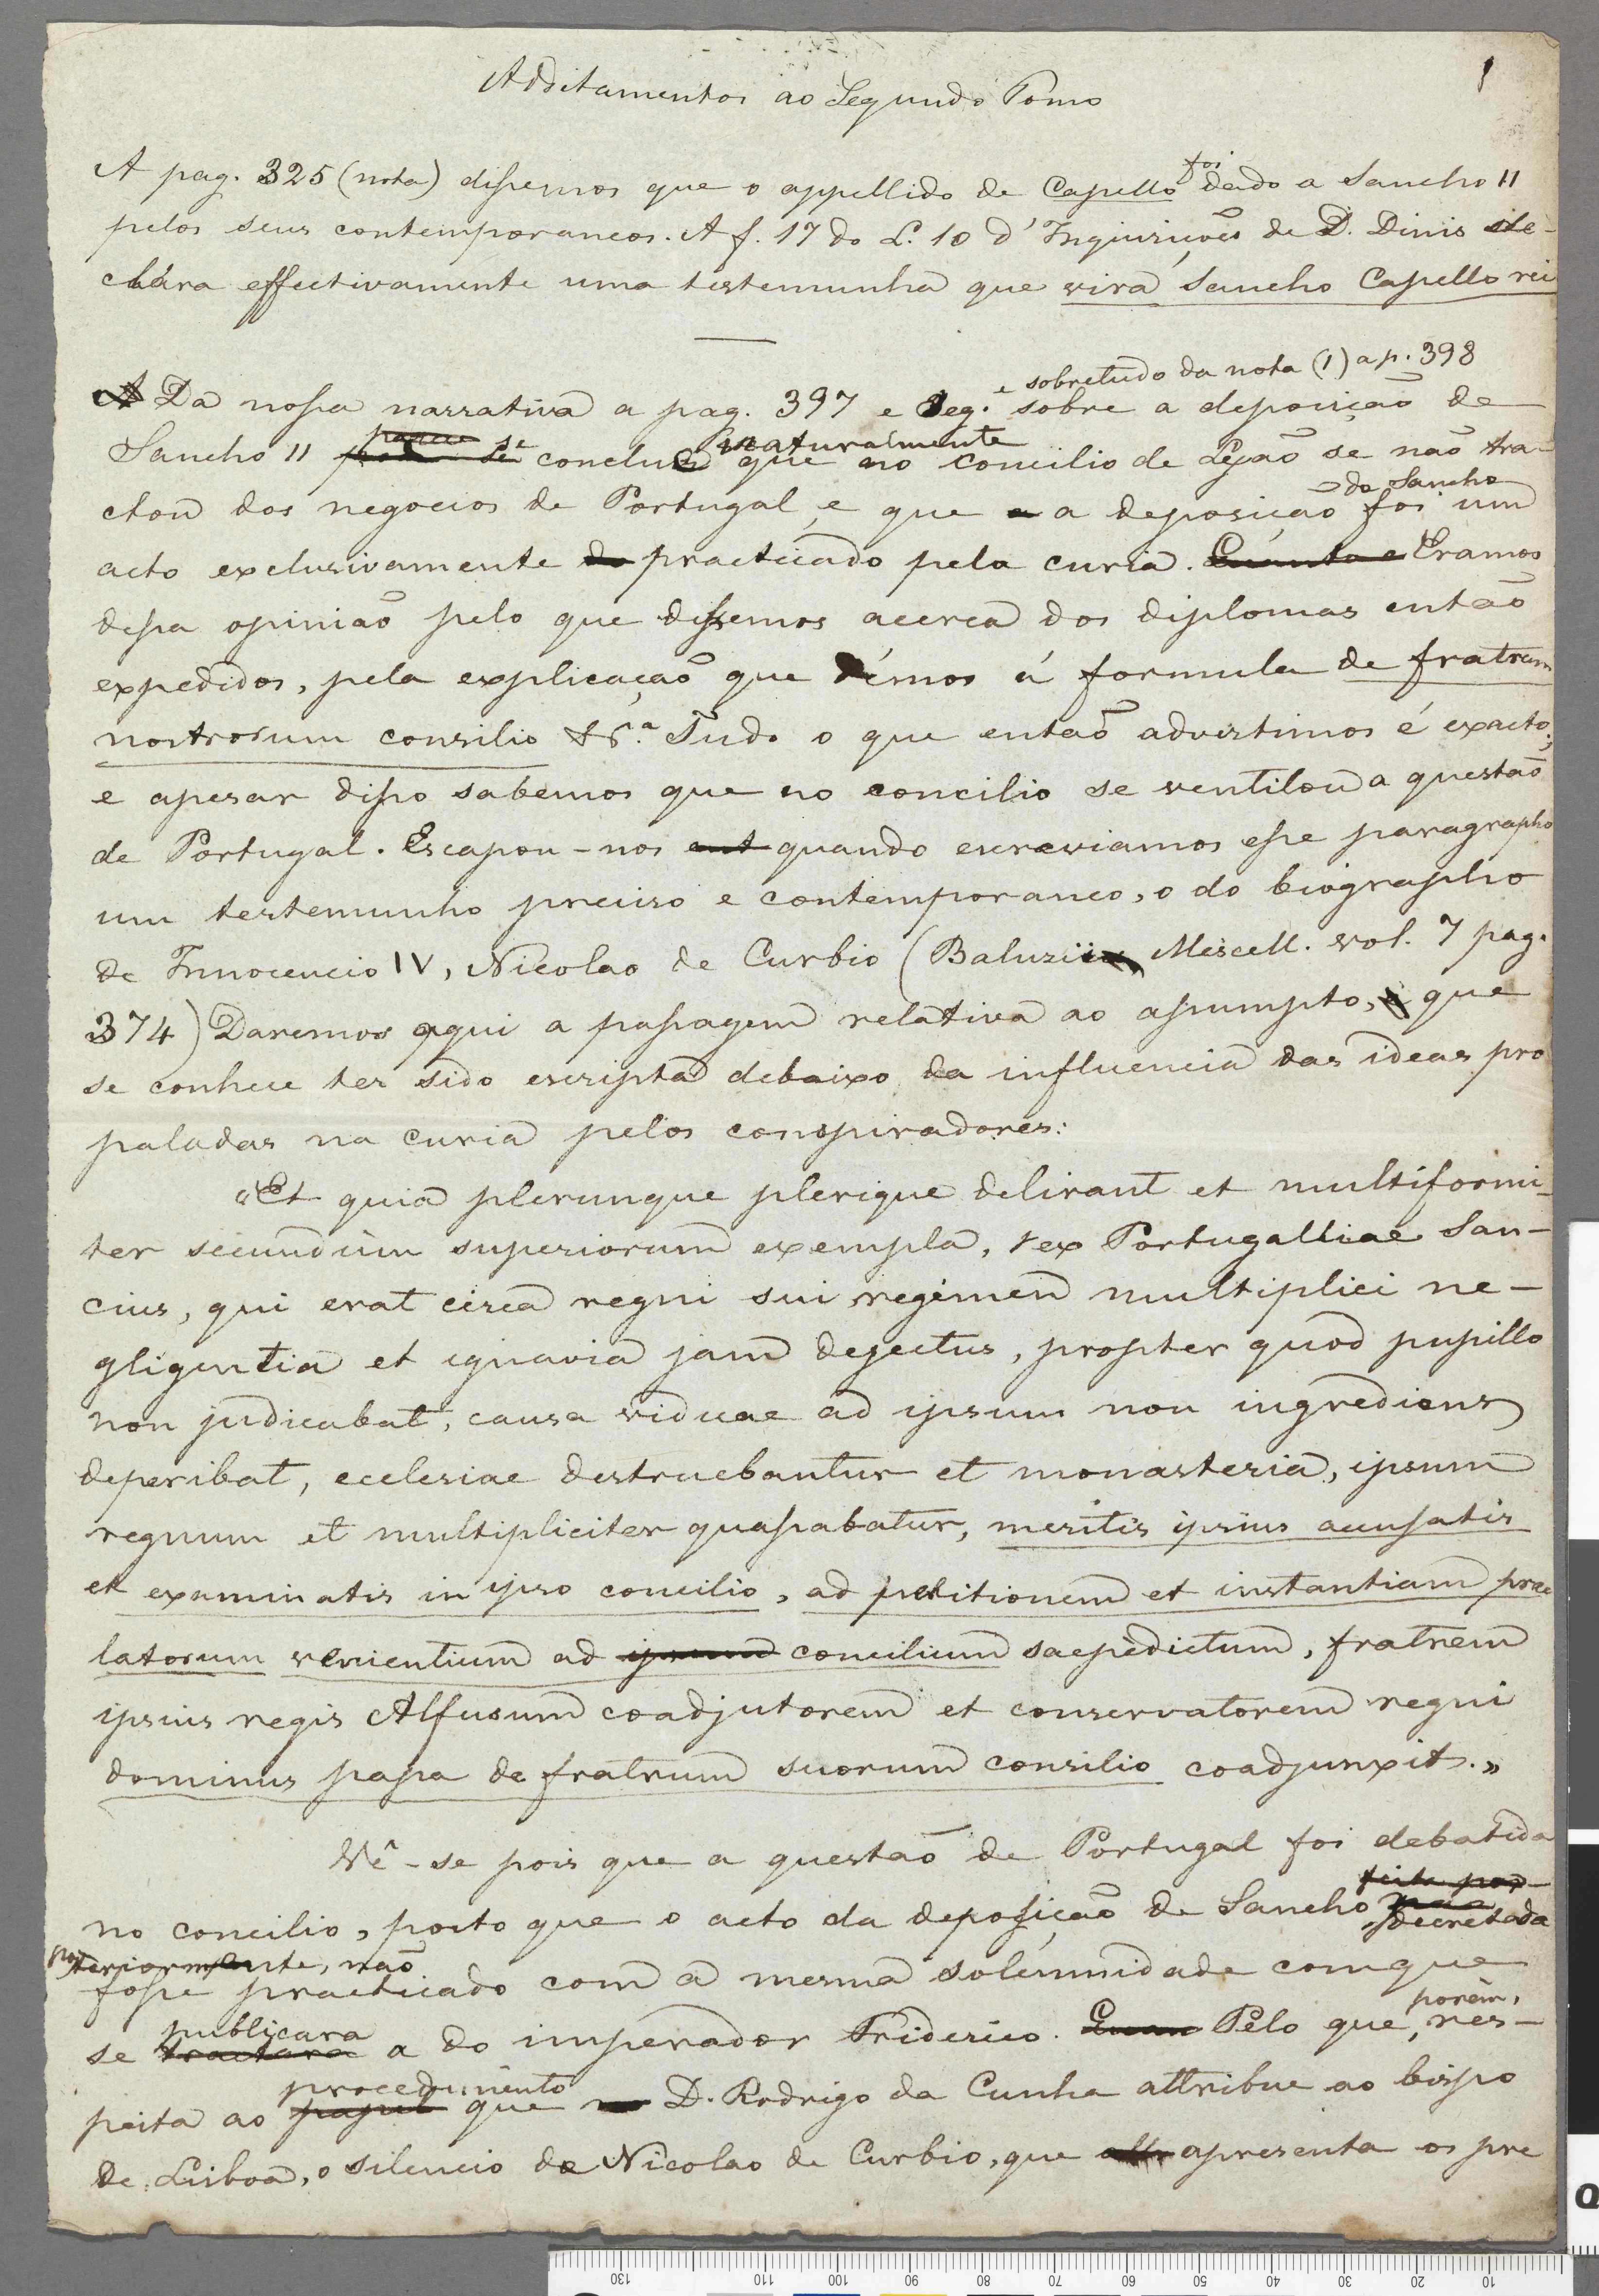 1
Additamentos ao Segundo Tomo
A pag. 325 (nota) dissemos que o appellido de Capello foi dado a Sancho II
pelos seus contemporaneos. A f. 17 do L. 10 d'Inquirições de D. Dinis de-
clára effectivamente uma testemunha que vira Sancho Capello rei
e sobretudo da nota (1) a p. 398
Da nossa narrativa a pag. 397 e seg. sobre a deposição de
parece se naturalmente
Sancho II conclue que no concilio de Leão se não tra-
de Sancho
ctou dos negocios de Portugal, e que a deposição foi um
acto exclusivamente practicado pela curia. Eramos
dessa opinião pelo que dissemos acerca dos diplomas então
expedidos, pela explicação que démos á formula de fratrum
nostrorum consilio &.ª Tudo o que então advertimos é exacto;
e apesar disso sabemos que no concilio se ventilou a questão
de Portugal. Escapou-nos quando escreviamos esse paragrapho
um testemunho preciso e contemporaneo, o do biographo
de Innocencio IV, Nicolao de Curbio (Baluzii Miscell. vol. 7 pag.
374) Daremos aqui a passagem relativa ao assumpto, que
se conhece ter sido escripta debaixo da influencia das ideas pro
paladas na curia pelos conspiradores:
«Et quia plerunque plerique delirant et multiformi-
ter secundùm superiorum exempla, rex Portugalliae San-
cius, qui erat circa regni sui regimen multiplici ne-
gligentia et ignavia jam dejectus, propter quod pupillo
non judicabat, causa viduae ad ipsum non ingrediens
deperibat, ecclesiae destruebantur et monasteria, ipsum
regnum et multipliciter quassabatur, meritis ipsius accusatis
et examinatis in ipso concilio, ad petitionem et instantiam prae
latorum venientium ad ipsum concilium saepèdictum, fratrem
ipsius regis Alfusum coadjutorem et conservatorem regni
dominus papa de fratrum suorum consilio coadjunxit.»
Vê-se pois que a questão de Portugal foi debatida
feita por-
no concilio, posto que o acto da deposição de Sancho decretada
posteriormente, não
fosse practicado com a mesma solemnidade com que
publicara porèm,
se tractara a do imperador Friderico. Pelo que, res-
procedimento
peita ao papel que D. Rodrigo da Cunha attribue ao bispo
de Lisboa, o silencio de Nicolao de Curbio, que apresenta os pre
130 110 100 90 80 70 60 50 40 30 20 10